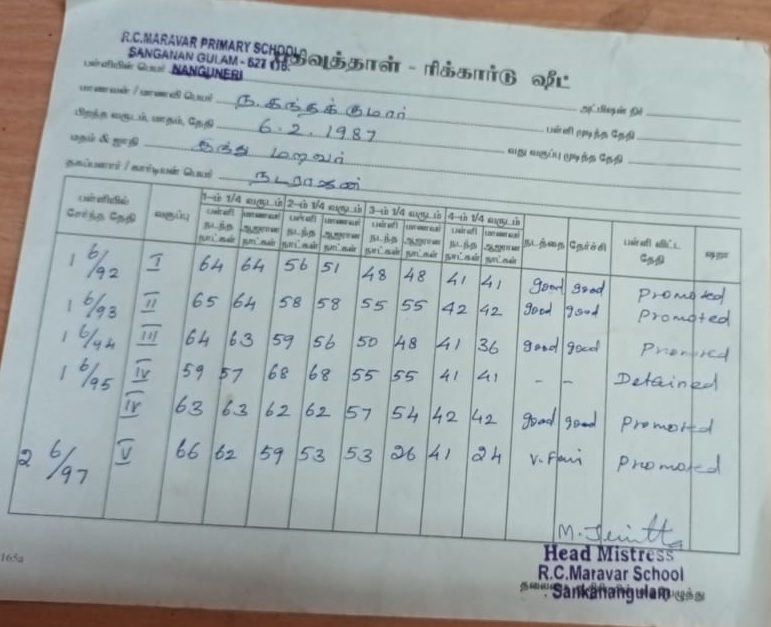 R.C.MARAVAR PRIMARY SCHOOL
SANGANAN GULAM - 627
NANGUNERI
பதிவுத்தாள் - ரிக்கார்டு ஷீட்
பள்ளியின் பெயர்
மாணவன் / மாணவி பெயர் ந. கந்தக்குமார் அட்மிஷன் நிர்
பிறந்த வருடம், மாதம், தேதி 6.2.1987 பள்ளி முடிந்த தேதி
மதம் & ஜாதி இந்து மறவர் வது வகுப்பு முடிந்த தேதி
தகப்பனார் / கார்டியன் பெயர் நடராஜன்
பள்ளியில் சேர்ந்த தேதி வகுப்பு 1-ம் 1/4 வருடம் 2-ம் 1/4 வருடம் 3-ம் 1/4 வருடம் 4-ம் 1/4 வருடம் நடத்தை தேர்ச்சி பள்ளி விட்ட தேதி ஷரா
பள்ளி நடந்த நாட்கள் மாணவர் ஆஜரான நாட்கள் பள்ளி நடந்த நாட்கள் மாணவர் ஆஜரான நாட்கள் பள்ளி நடந்த நாட்கள் மாணவர் ஆஜரான நாட்கள் பள்ளி நடந்த நாட்கள் மாணவர் ஆஜரான நாட்கள்
1 6/92 I 64 64 56 51 48 48 41 41 good good Promoted
1 6/93 II 65 64 58 58 55 55 42 42 good good Promoted
1 6/94 III 64 63 59 56 50 48 41 36 good good Promoted
1 6/95 IV 59 57 68 68 55 55 41 41 - - Detained
IV 63 63 62 62 57 54 42 42 good good Promoted
2 6/97 V 66 62 59 53 53 26 41 24 V.Fair Promoted
Head Mistress
R.C.Maravar School
Sankanangulam
165a